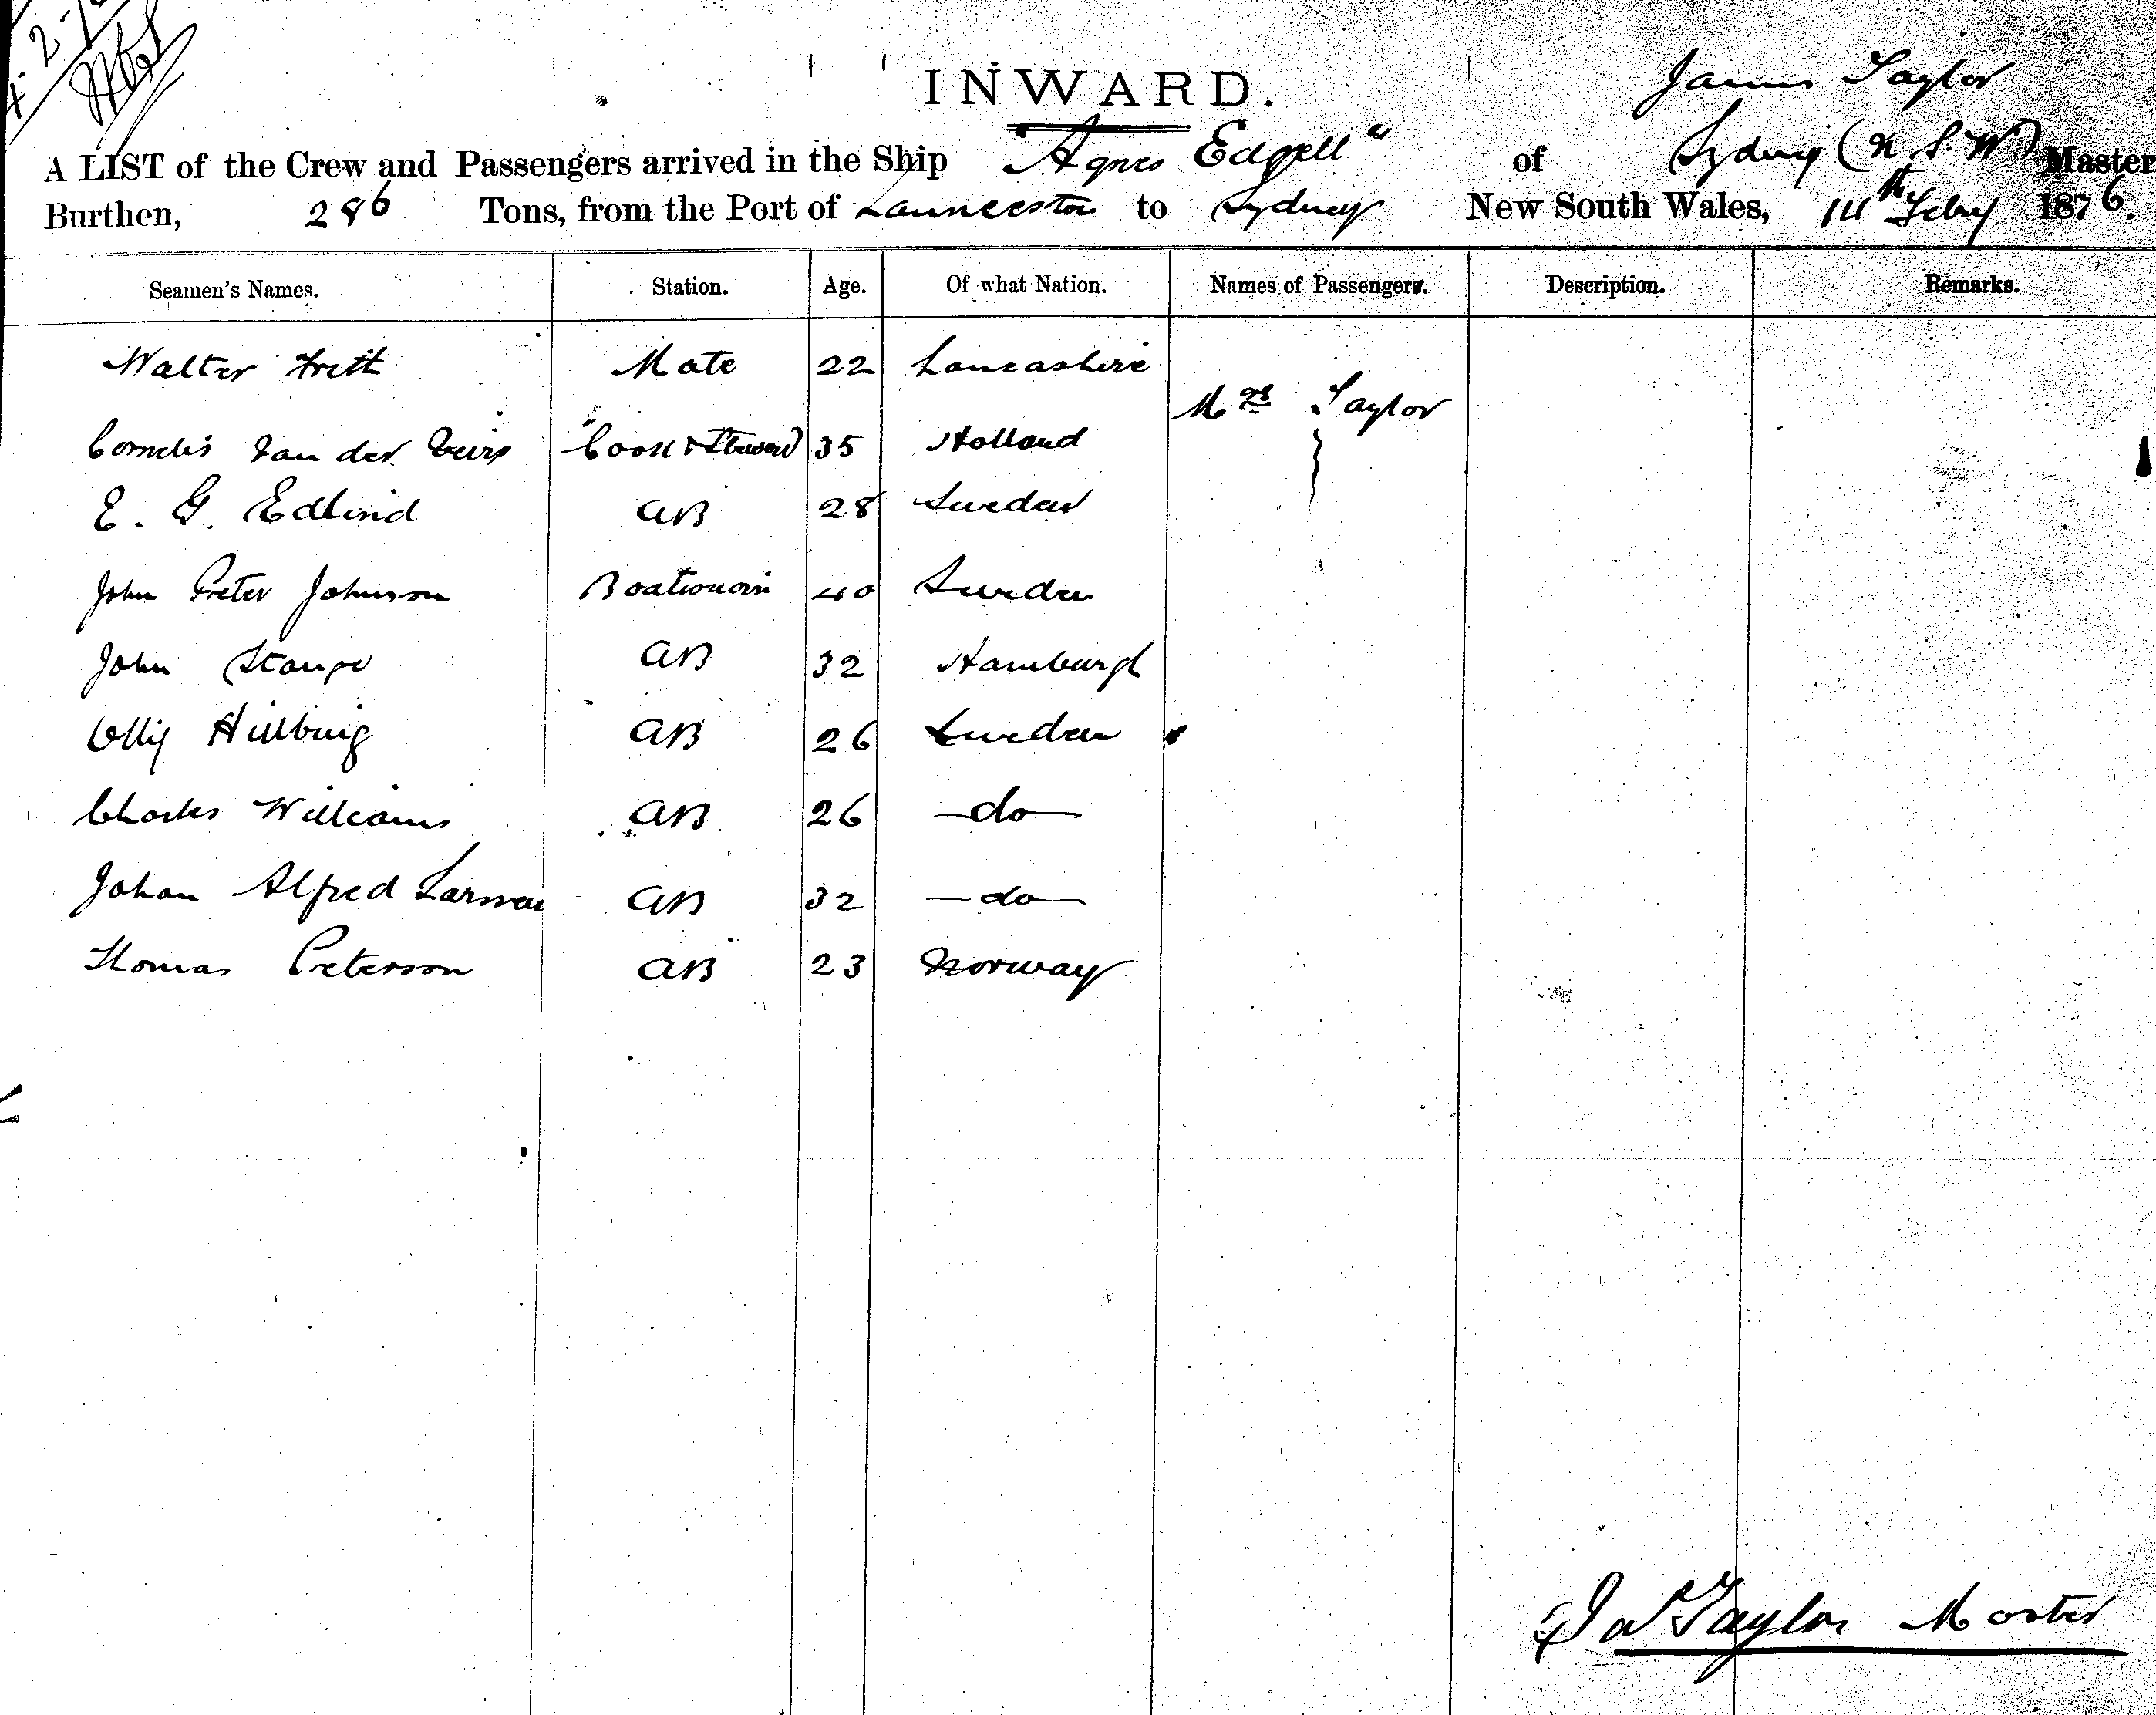 4-2-
INWARD.
James Taylor
A LIST of the Crew and Passengers arrived in the Ship "Agnes Edgell" of Sydney (N.S.W) Master
Burthen, 286 Tons, from the Port of Launceston to Sydney New South Wales, 14th Feby 1876.
Seamen's Names. Station. Age. Of what Nation. Names of Passengers. Description. Remarks.
Walter Frith Mate 22 Lancashire
Mrs Taylor
Cornelis Van der Cook & Steward 35 Holland
E. G. Edlind AB 28 Sweden
John Peter Johnson Boatswain 40 Sweden
John Stange AB 32 Hamburgh
Hillburg AB 26 Sweden
Charles Williams AB 26 do
Johan Alfred Larsson AB 32 do
Thomas Peterson AB 23 Norway
Jas Taylor Master